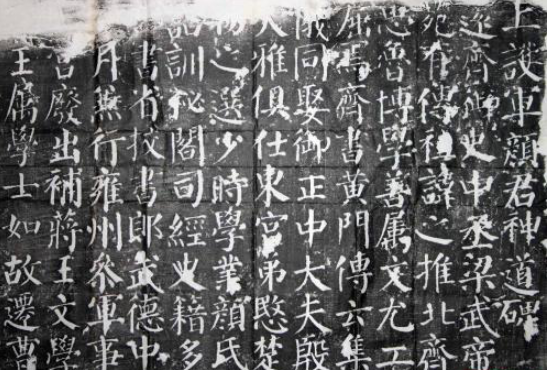 上護軍顏君神道碑
遠齊御史中丞梁武帝
苑有傳祖諱之推北齊
思魯博學善屬文尤工
屈焉齊書黃門傳云集
儀同娶御正中大夫殷
大雅俱仕東宮弟愍楚
物之選少時學業顏氏
詁訓秘閣司經史籍多
書省校書郎武德中
月兼行雍州參軍事
宮廢出補蔣王文學
王屬學士如故遷曹